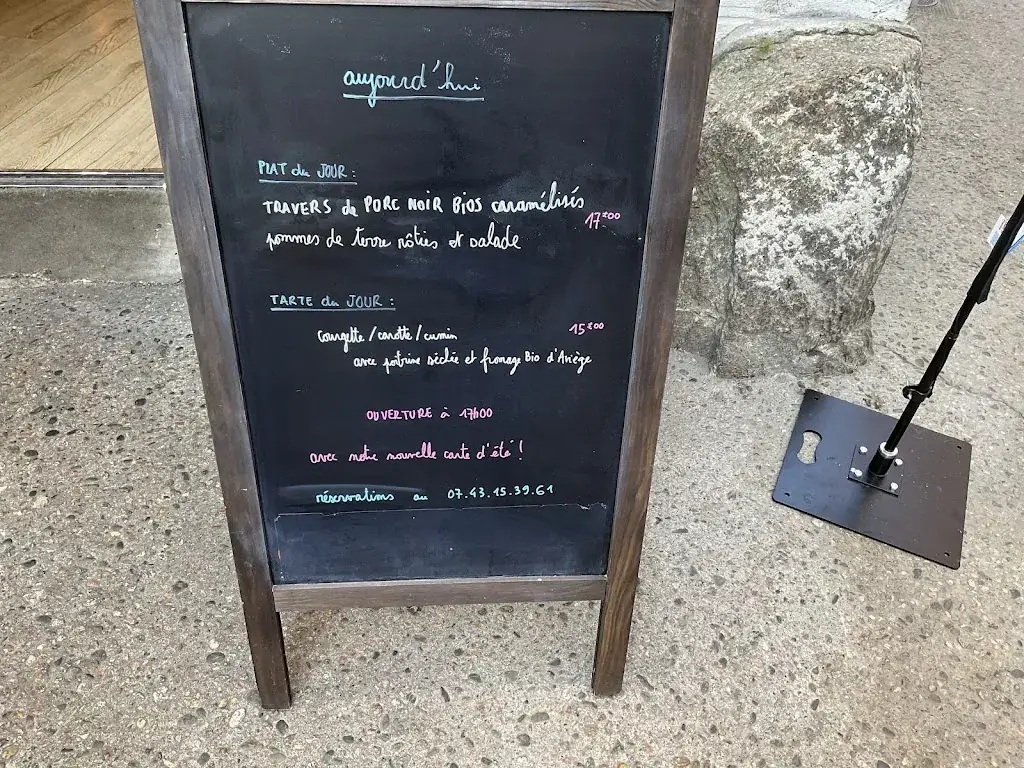 aujourd'hui
PLAT du JOUR :
TRAVERS de PORC NOIR BIOS caramélisés
17€00
pommes de terre rôties et salade
TARTE du JOUR :
courgette / carotte / cumin
15€00
avec poitrine séchée et fromage Bio d'Ariège
OUVERTURE à 17h00
avec notre nouvelle carte d'été !
réservations au 07.43.15.39.61